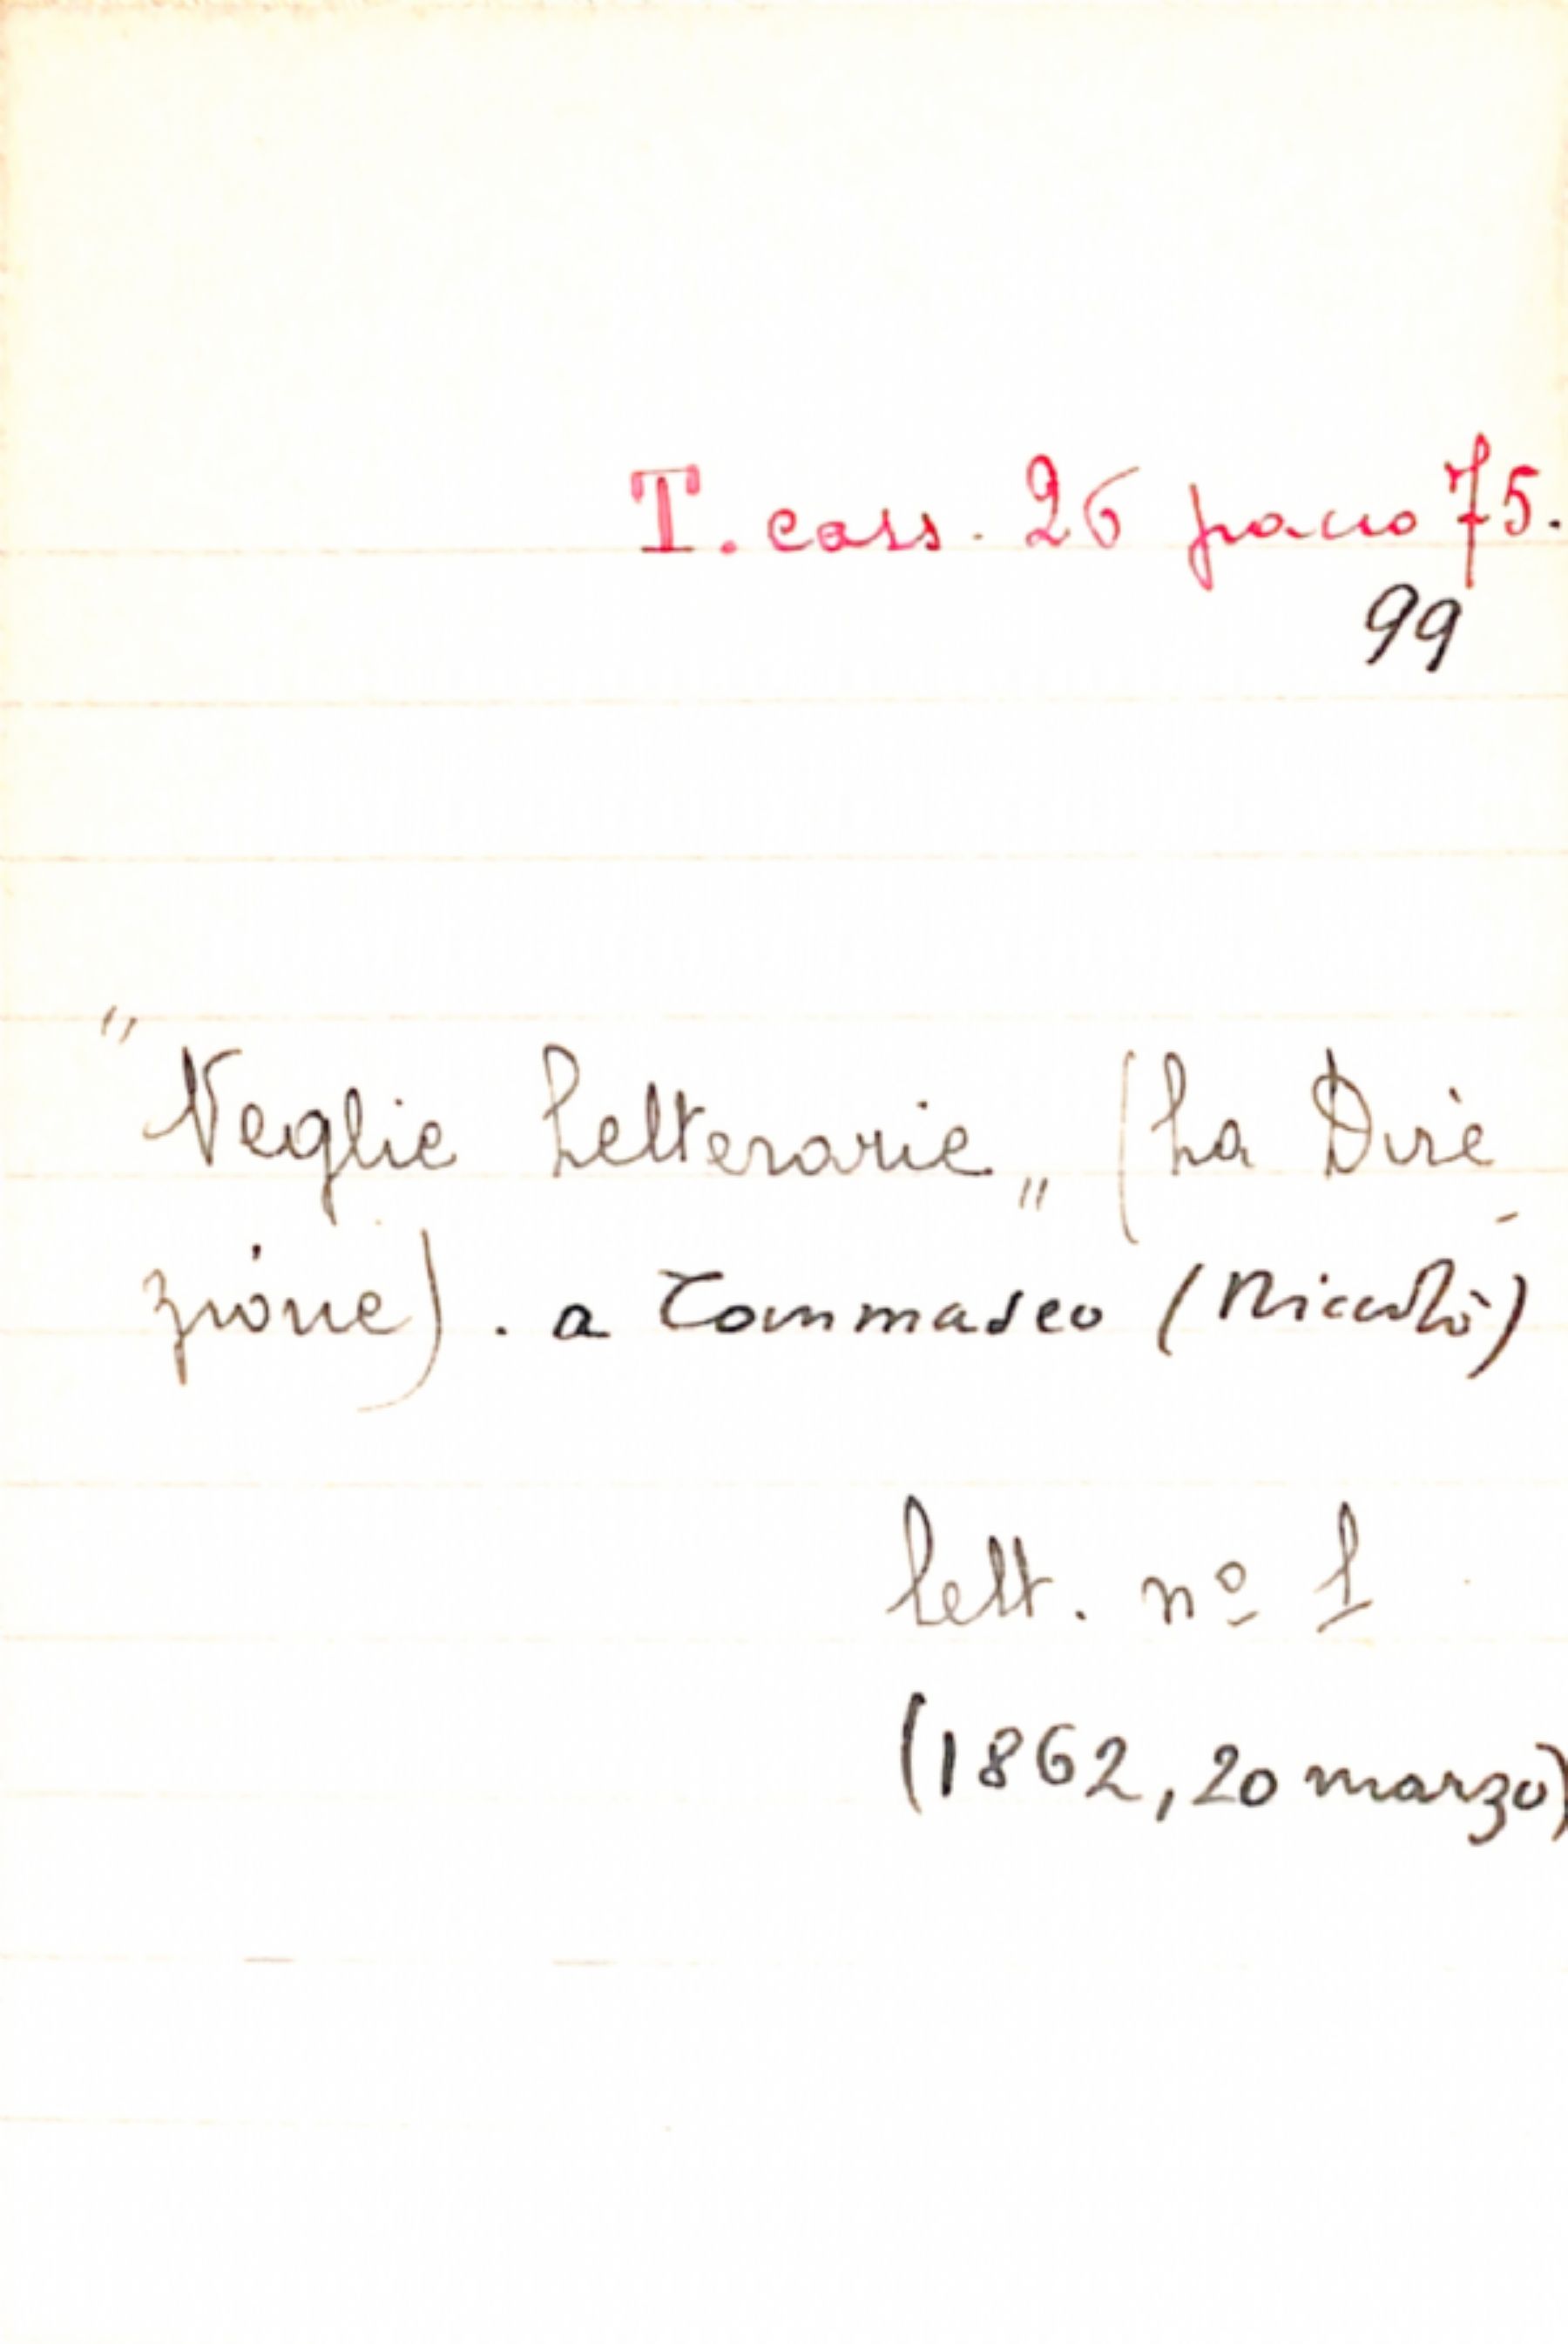 T. cass. 26 pacco 75.
99
"Veglie Letterarie„ (La Dire-
zione). a Tommaseo (Niccolò)
Lett. nº 1
(1862, 20 marzo)